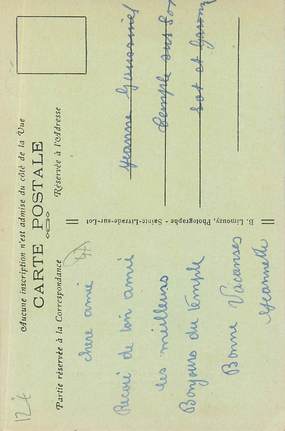 Aucune inscription n'est admise du côté de la Vue
CARTE POSTALE
Partie réservée à la Correspondance
Réservée à l'Addresse
chère amie
Reçoi de ton amie
les meilleurs
Bonjours du temple
Bonne Vacanses
Jeannette
B. Limouzy, Photographe - Sainte-Livrade-sur-Lot
Jeanne
Temple sur Lot
Lot et Garonne
12 f